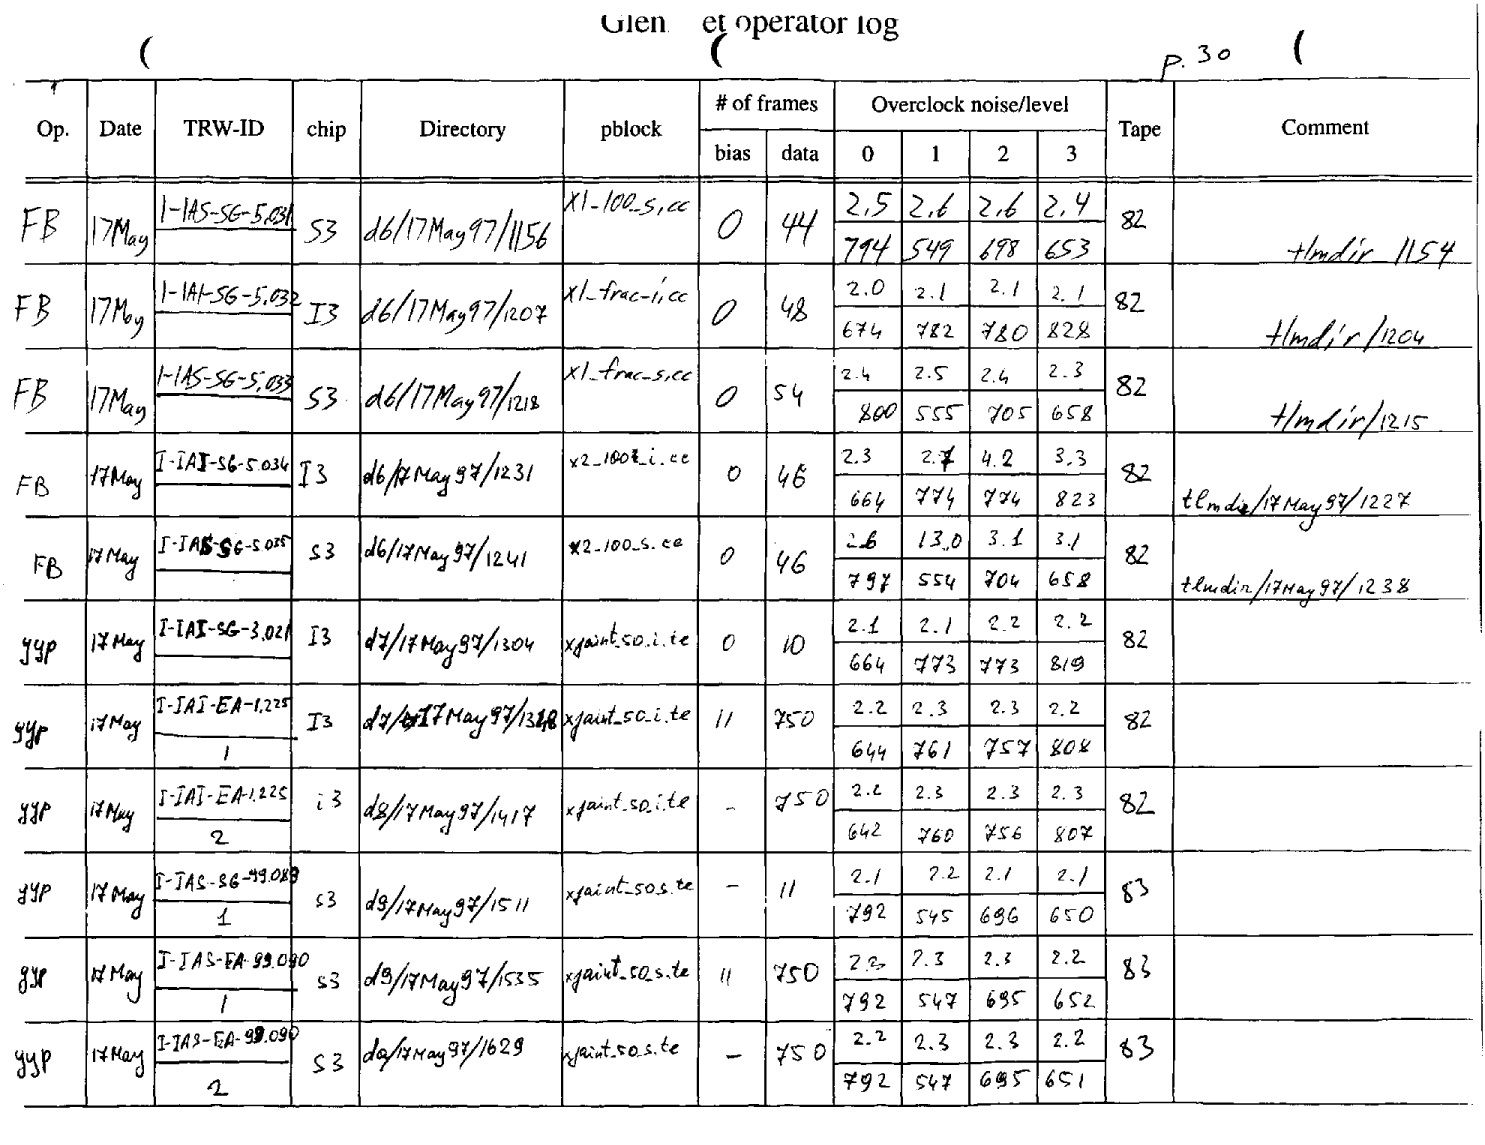 et operator log
p. 30
Op. Date TRW-ID chip Directory pblock # of frames Overclock noise/level Tape Comment
bias data 0 1 2 3
FB 17May I-IAS-SG-5.031 S3 d6/17May97/1156 x1-100_s.cc 0 44 2.5 2.6 2.6 2.4 82
794 549 698 653 tlmdir 1154
FB 17May I-IAI-SG-5.032 I3 d6/17May97/1207 x1_frac-i.cc 0 48 2.0 2.1 2.1 2.1 82
674 782 780 828 tlmdir/1204
FB 17May I-IAS-SG-5.033 S3 d6/17May97/1218 x1_frac_s.cc 0 54 2.4 2.5 2.4 2.3 82
800 555 705 658 tlmdir/1215
FB 17May I-IAI-SG-5.034 I3 d6/17May97/1231 x2_100_i.cc 0 46 2.3 2.7 4.2 3.3 82
664 774 774 823 tlmdir/17May97/1227
FB 17May I-IAS-SG-5.035 S3 d6/17May97/1241 x2_100_s.cc 0 46 2.6 13.0 3.1 3.1 82
797 554 704 658 tlmdir/17May97/1238
yyp 17May I-IAI-SG-3.021 I3 d7/17May97/1304 xjaint_50_i.te 0 10 2.1 2.1 2.2 2.2 82
664 773 773 819
yyp 17May I-IAI-EA-1.225 I3 d7/17May97/1328 xjaint_50_i.te 11 750 2.2 2.3 2.3 2.2 82
1 644 761 757 808
yyp 17May I-IAI-EA-1.225 i3 d8/17May97/1417 xjaint_50_i.te - 750 2.2 2.3 2.3 2.3 82
2 642 760 756 807
yyp 17May I-IAS-SG-99.089 s3 d9/17May97/1511 xjaint_50_s.te - 11 2.1 2.2 2.1 2.1 83
1 792 545 696 650
yyp 17May I-IAS-EA-99.090 s3 d9/17May97/1535 xjaint_50_s.te 11 750 2.2 2.3 2.3 2.2 83
1 792 547 695 652
yyp 17May I-IAS-EA-99.090 S3 da/17May97/1629 xjaint_50_s.te - 750 2.2 2.3 2.3 2.2 83
2 792 547 695 651